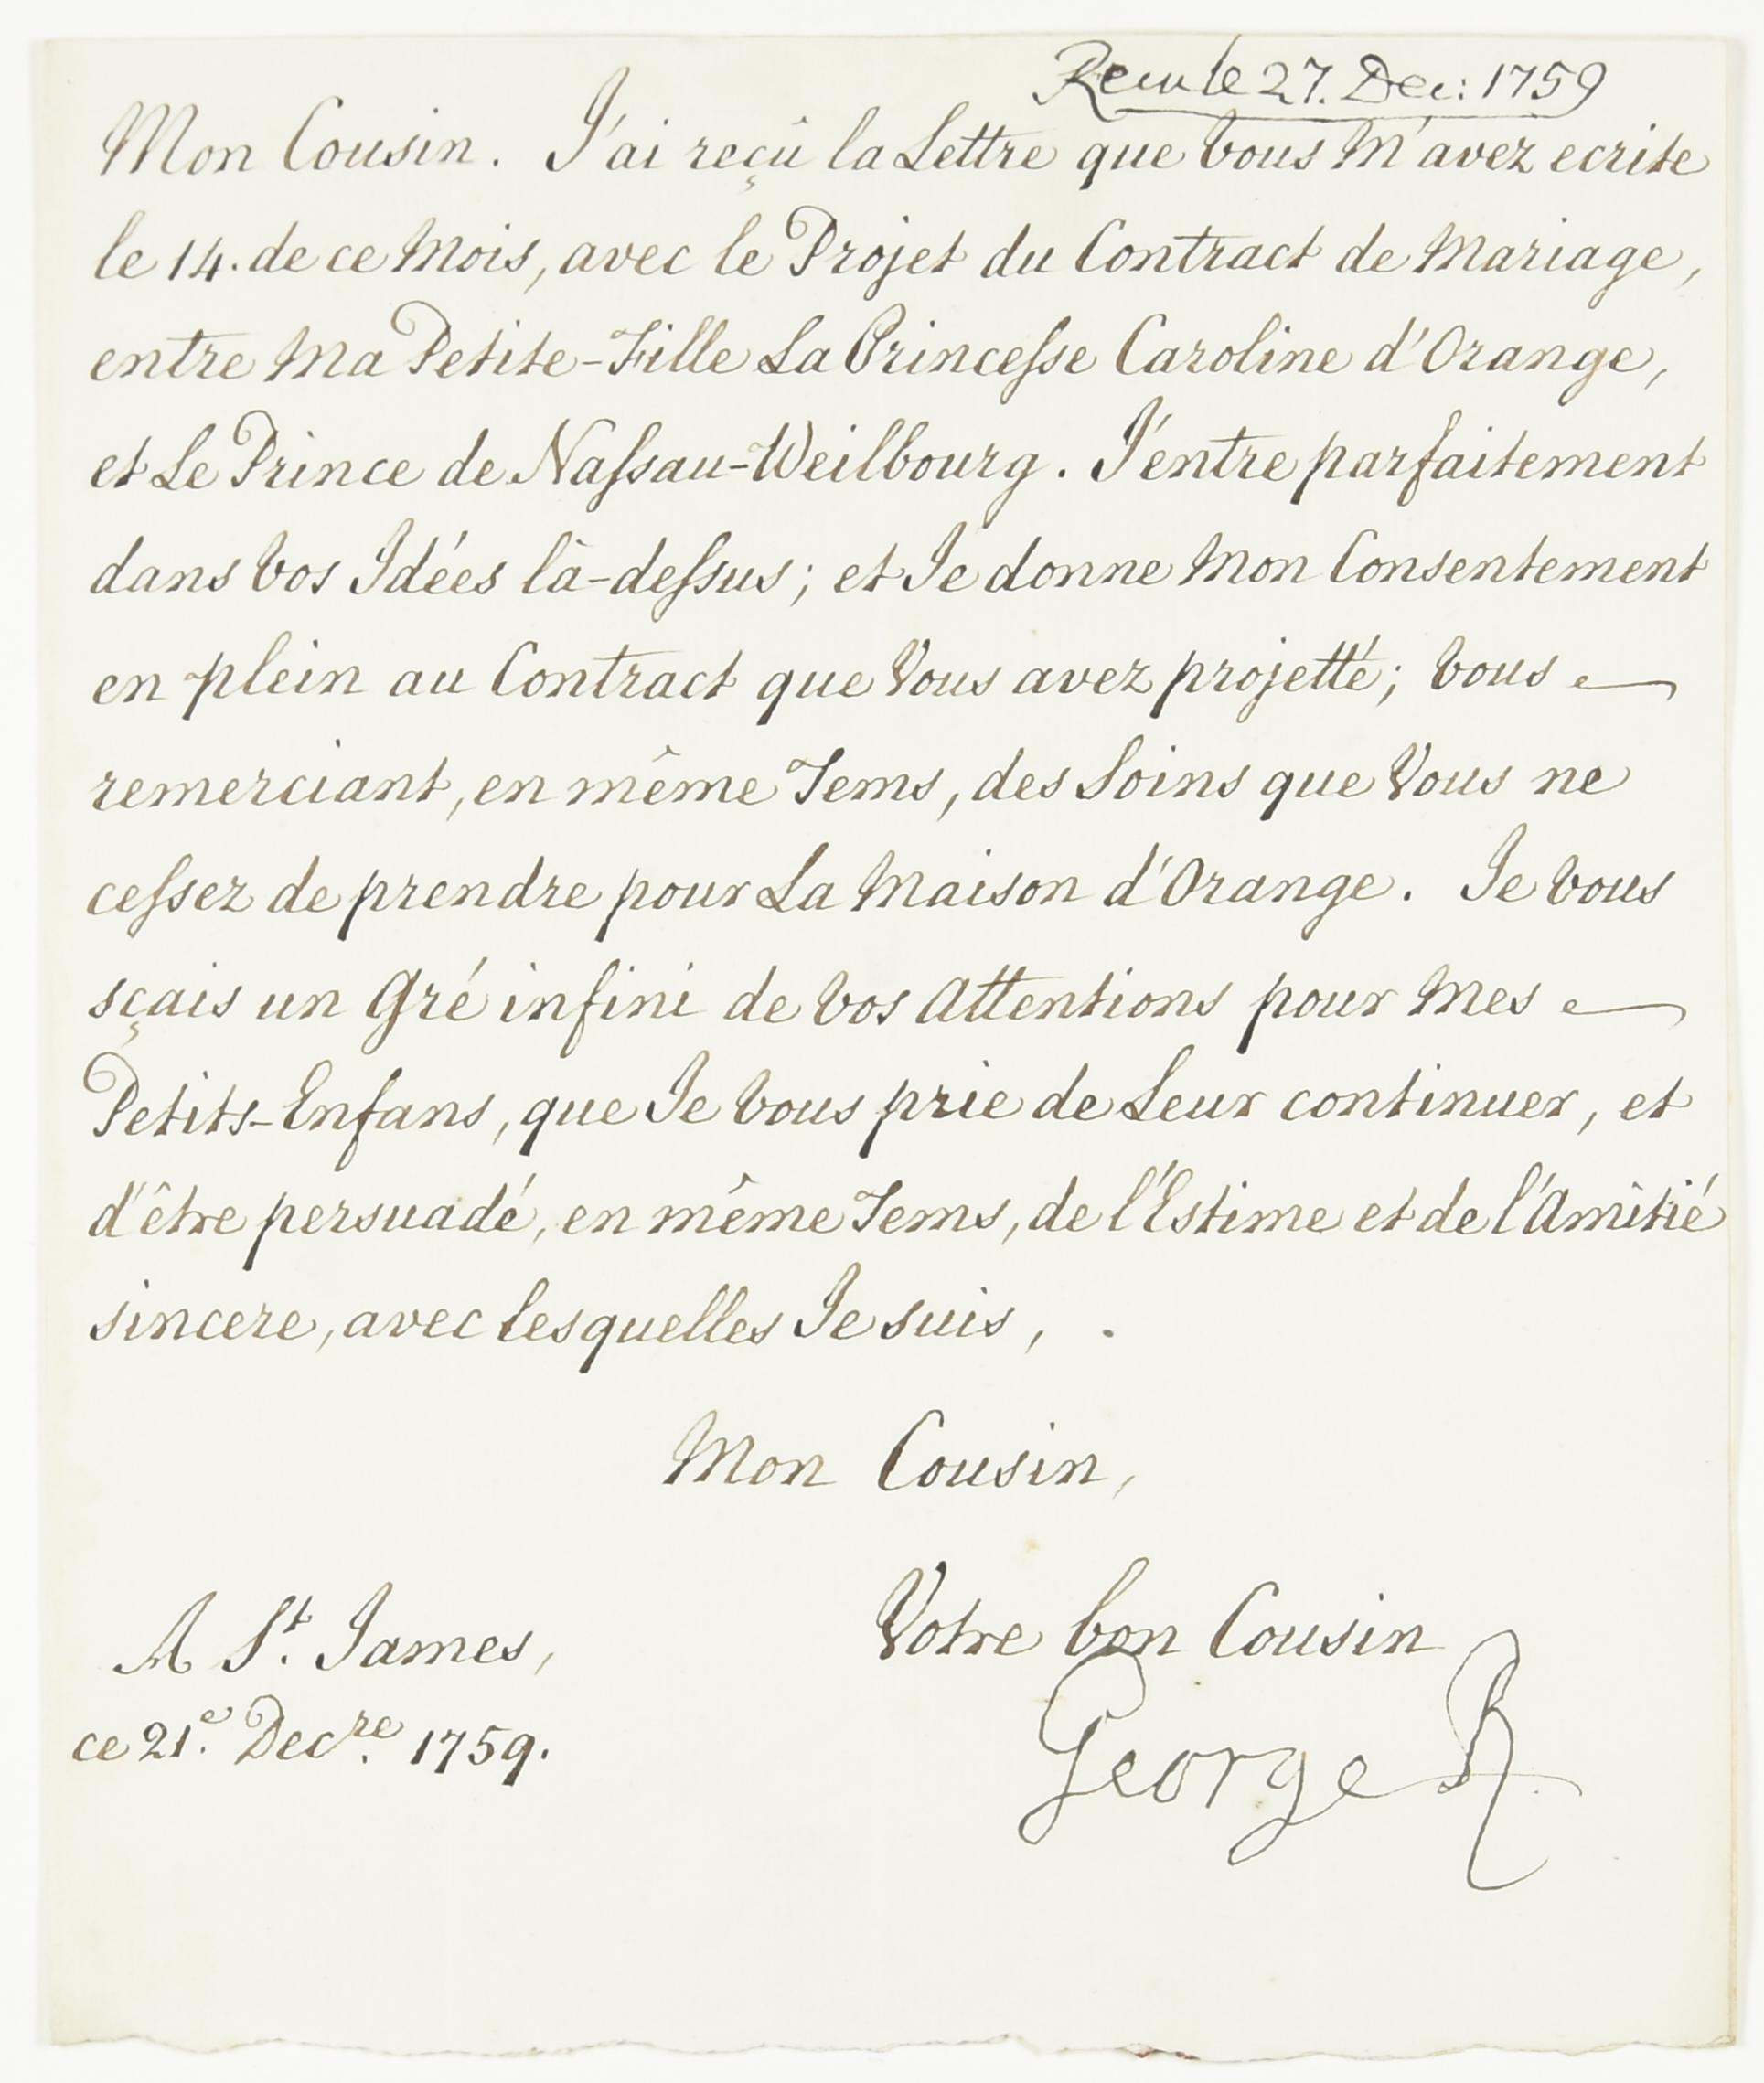 Recu le 27. Dec: 1759
Mon Cousin. J'ai reçû la Lettre que Vous M'avez ecrite
le 14. de ce Mois, avec le Projet du Contract de Mariage,
entre Ma Petite-Fille La Princeſse Caroline d'Orange,
et Le Prince de Naſsau-Weilbourg. J'entre parfaitement
dans Vos Idées là-deſsus; et Je donne Mon Consentement
en plein au Contract que Vous avez projetté; Vous
remerciant, en même Tems, des Soins que Vous ne
ceſsez de prendre pour La Maison d'Orange. Je Vous
sçais un Gré infini de Vos Attentions pour Mes
Petits-Enfans, que Je Vous prie de Leur continuer, et
d'être persuadé, en même Tems, de l'Estime et de l'Amitié
sincere, avec lesquelles Je suis,
Mon Cousin,
Votre bon Cousin
George R
A St. James,
ce 21e. Decre. 1759.